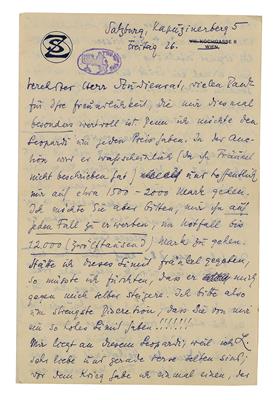 SZ
Salzburg, Kapuzinerberg 5
VIII. KOCHGASSE 8
WIEN
Freitag 26.
verehrter Herr Studienrat, vielen Dank
für Ihre freundlichkeit, die mir diesmal
besonders wertvoll ist, denn ich möchte den
Leopardi um jeden Preis haben. In der Auc-
tion wird er wahrscheinlich (da ihn Fränkel
nicht beschrieben hat) und hoffentlich
nur auf etwa 1500 - 2000 Mark gehen.
Ich möchte Sie aber bitten, mir ihn auf
jeden Fall zu erwerben, im Notfall bis
12.000 (zwölftausend) Mark zu gehen.
Hätte ich dieses Limit Fränkel gegeben,
so müsste ich fürchten, dass er mich
gegen mich selber steigere. Ich bitte also
um strengste Discretion, dass Sie von mir
ein so hohes Limit haben!!!!!!!
Mir liegt an diesem Leopardi, weil ich L.
sehr liebe und gerade Verse selten sind;
vor dem Krieg habe ich einmal einen, der